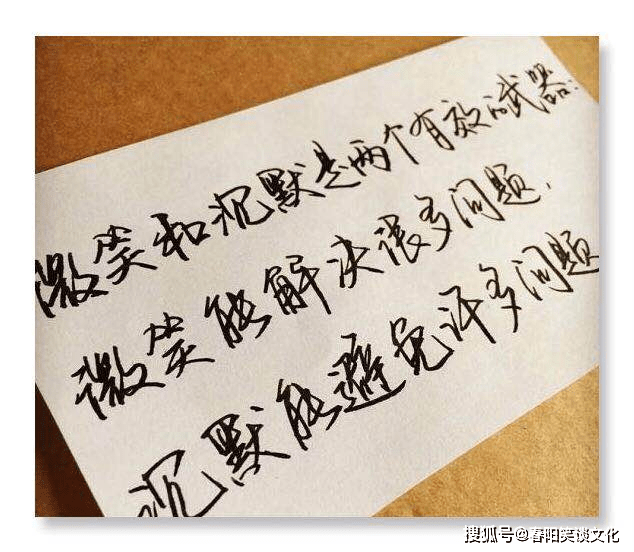 微笑和沉默是两个有效的武器:
微笑能解决很多问题,
沉默能避免许多问题
搜狐号@春阳笑谈文化